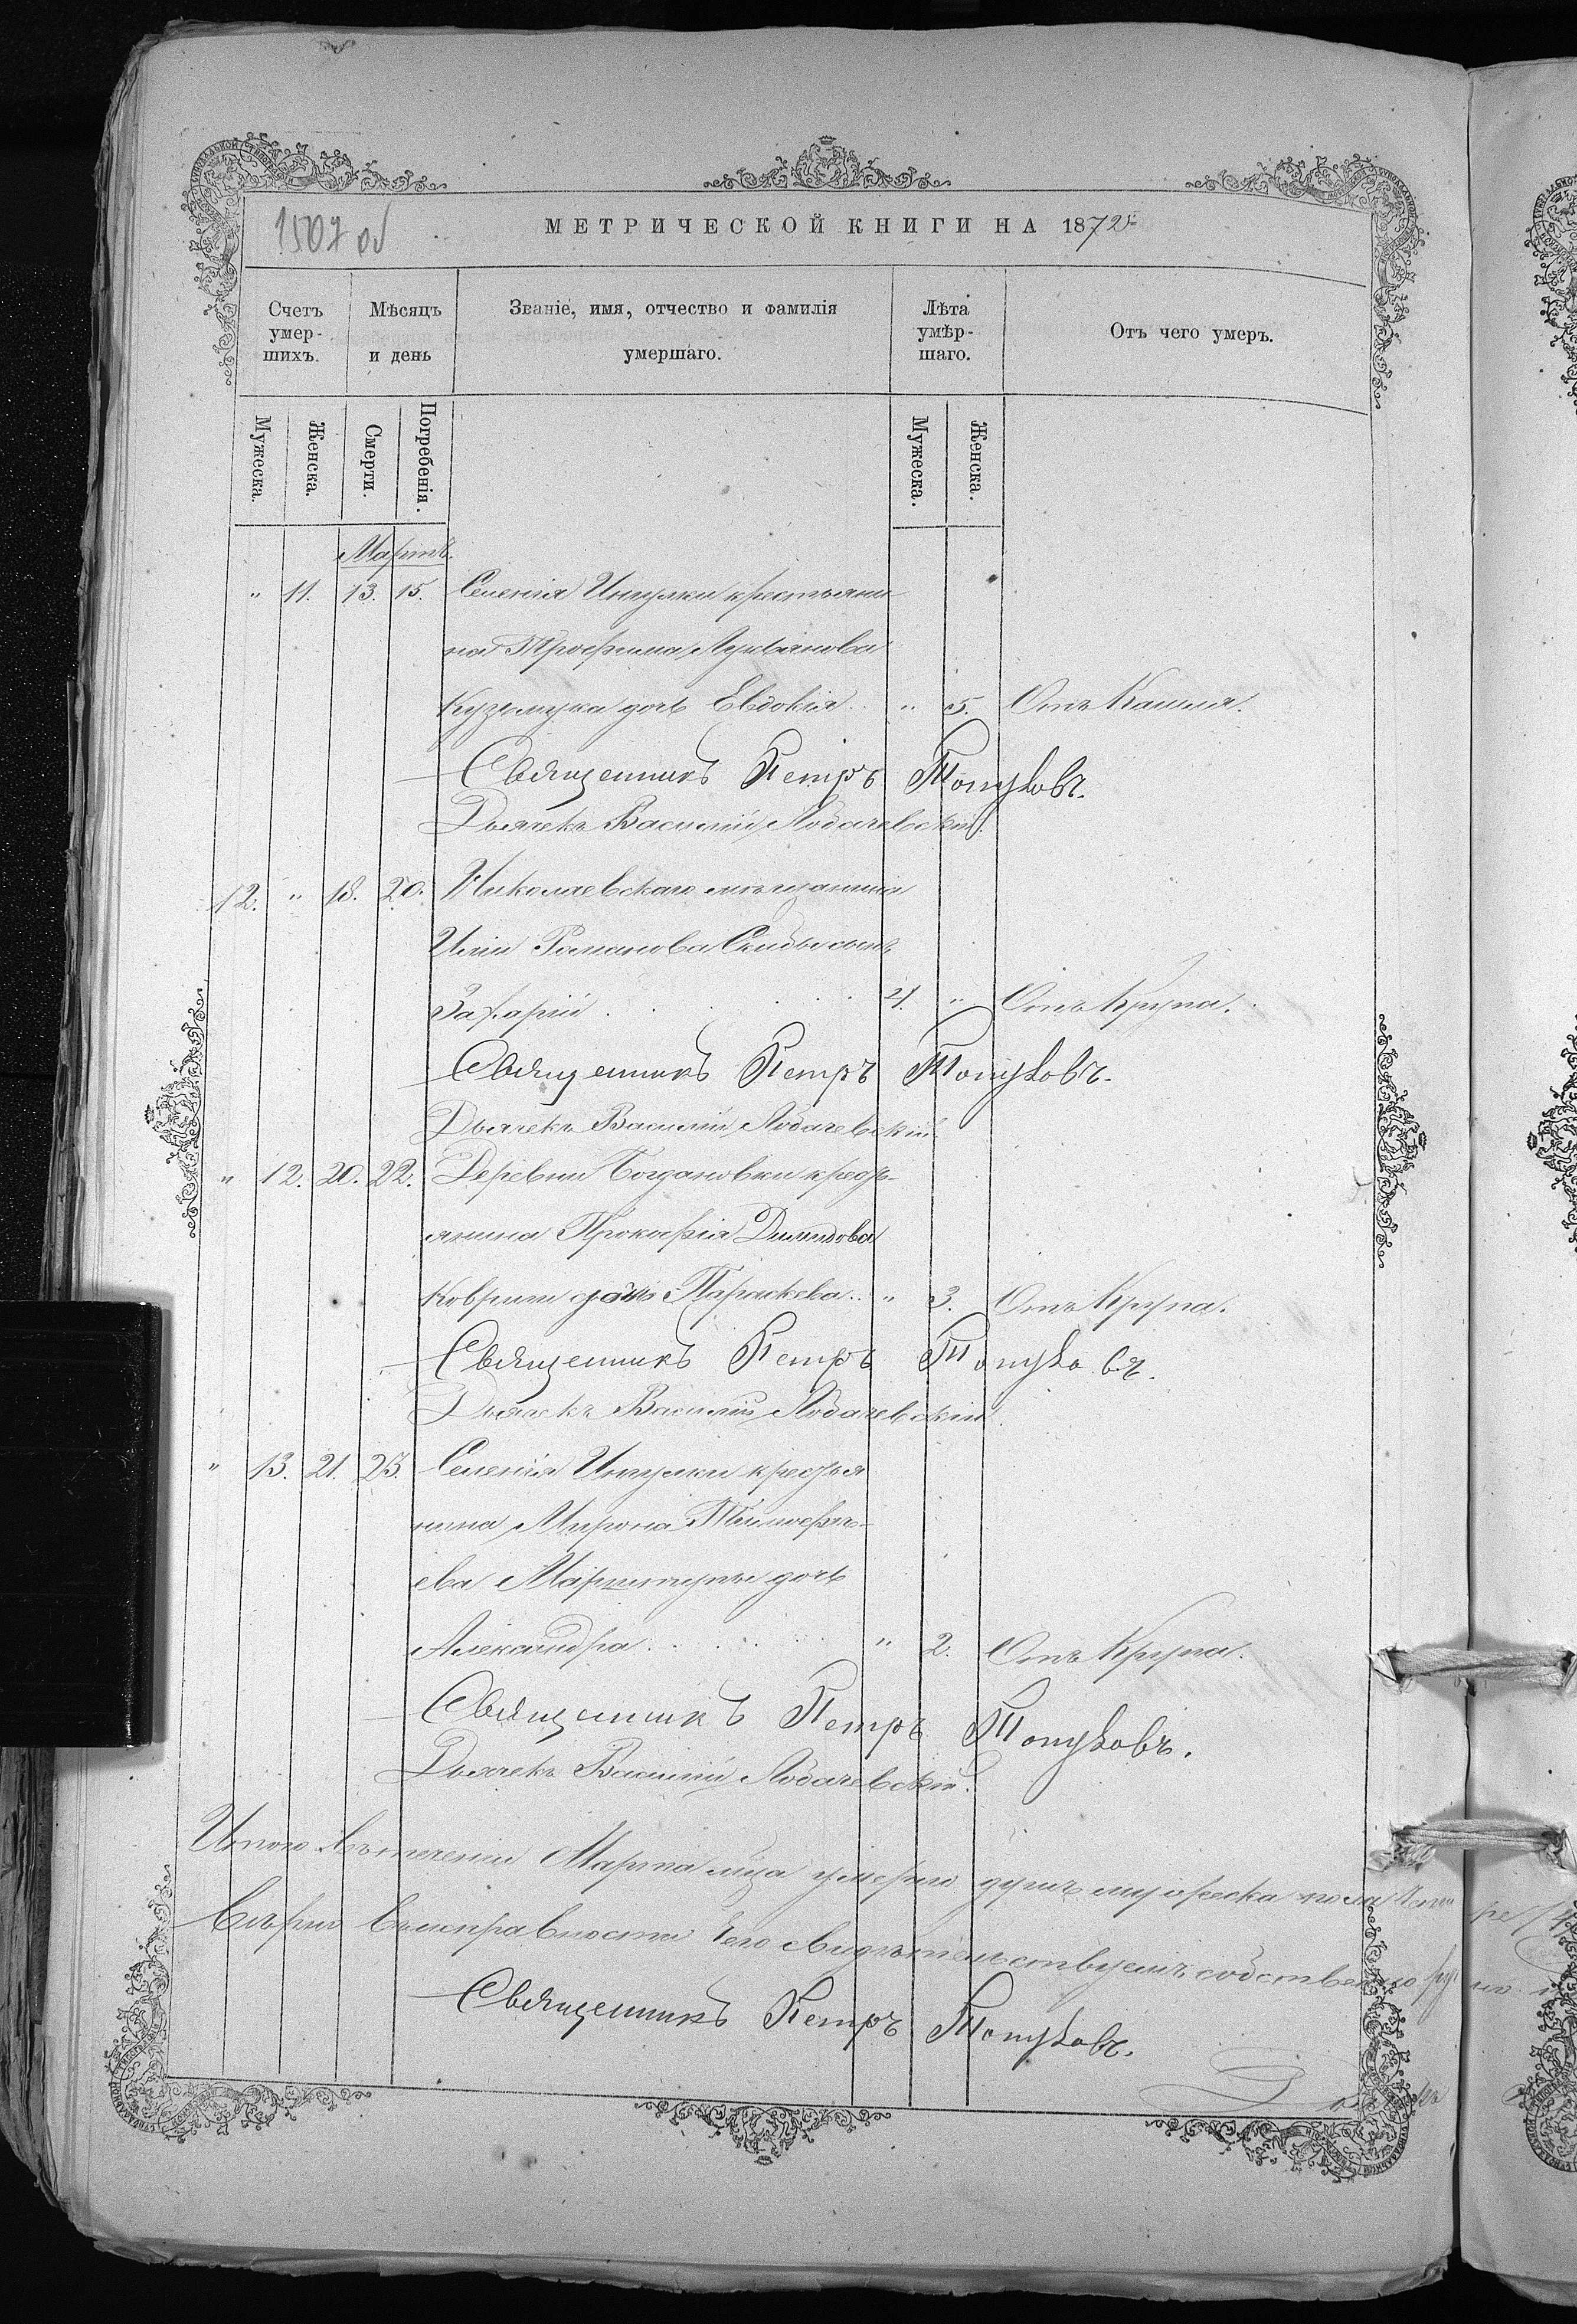 1507 об
МЕТРИЧЕСКОЙ КНИГИ НА 1872
Счетъ умер-шихъ.
Мѣсяцъ и день
Званіе, имя, отчество и фамилія умершаго.
Лѣта умѣр-шаго.
Отъ чего умеръ.
Мужеска. Женска. Смерти. Погребенія. Мужеска. Женска.
Мартъ.
" 11. 13. 15. Селенія Ингулки крестьяни
на Трофима Лукьянова
Кузьмука дочь Евдокія . . " 5. Отъ Кашля.
Священникъ Петръ Топуковъ.
Дьячекъ Василій Лобачевскій.
12. " 18. 20. Николаевскаго мѣщанина
Иліи Романова сынъ
Захарій . . . . . 4. " Отъ Крупа.
Священникъ Петръ Топуковъ.
Дьячекъ Василій Лобачевскій.
" 12. 20. 22. Деревни Богдановки кресть-
янина Прокофія Демидова
Ковриги дочь Параскева . . " 3. Отъ Крупа.
Священникъ Петръ Топуковъ.
Дьячекъ Василій Лобачевскій.
" 13. 21. 23. Селенія Ингулки крестья
нина Мирона Тимофѣ-
ева дочь
Александра . . . . . " 2. Отъ Крупа.
Священникъ Петръ Топуковъ.
Дьячекъ Василій Лобачевскій.
Итого въ теченіи Марта мѣца умерло душъ мужеска пола Четыре (4
Вѣрно въ исправности чего свидѣтельствуемъ собственно
Священникъ Петръ Топуковъ.